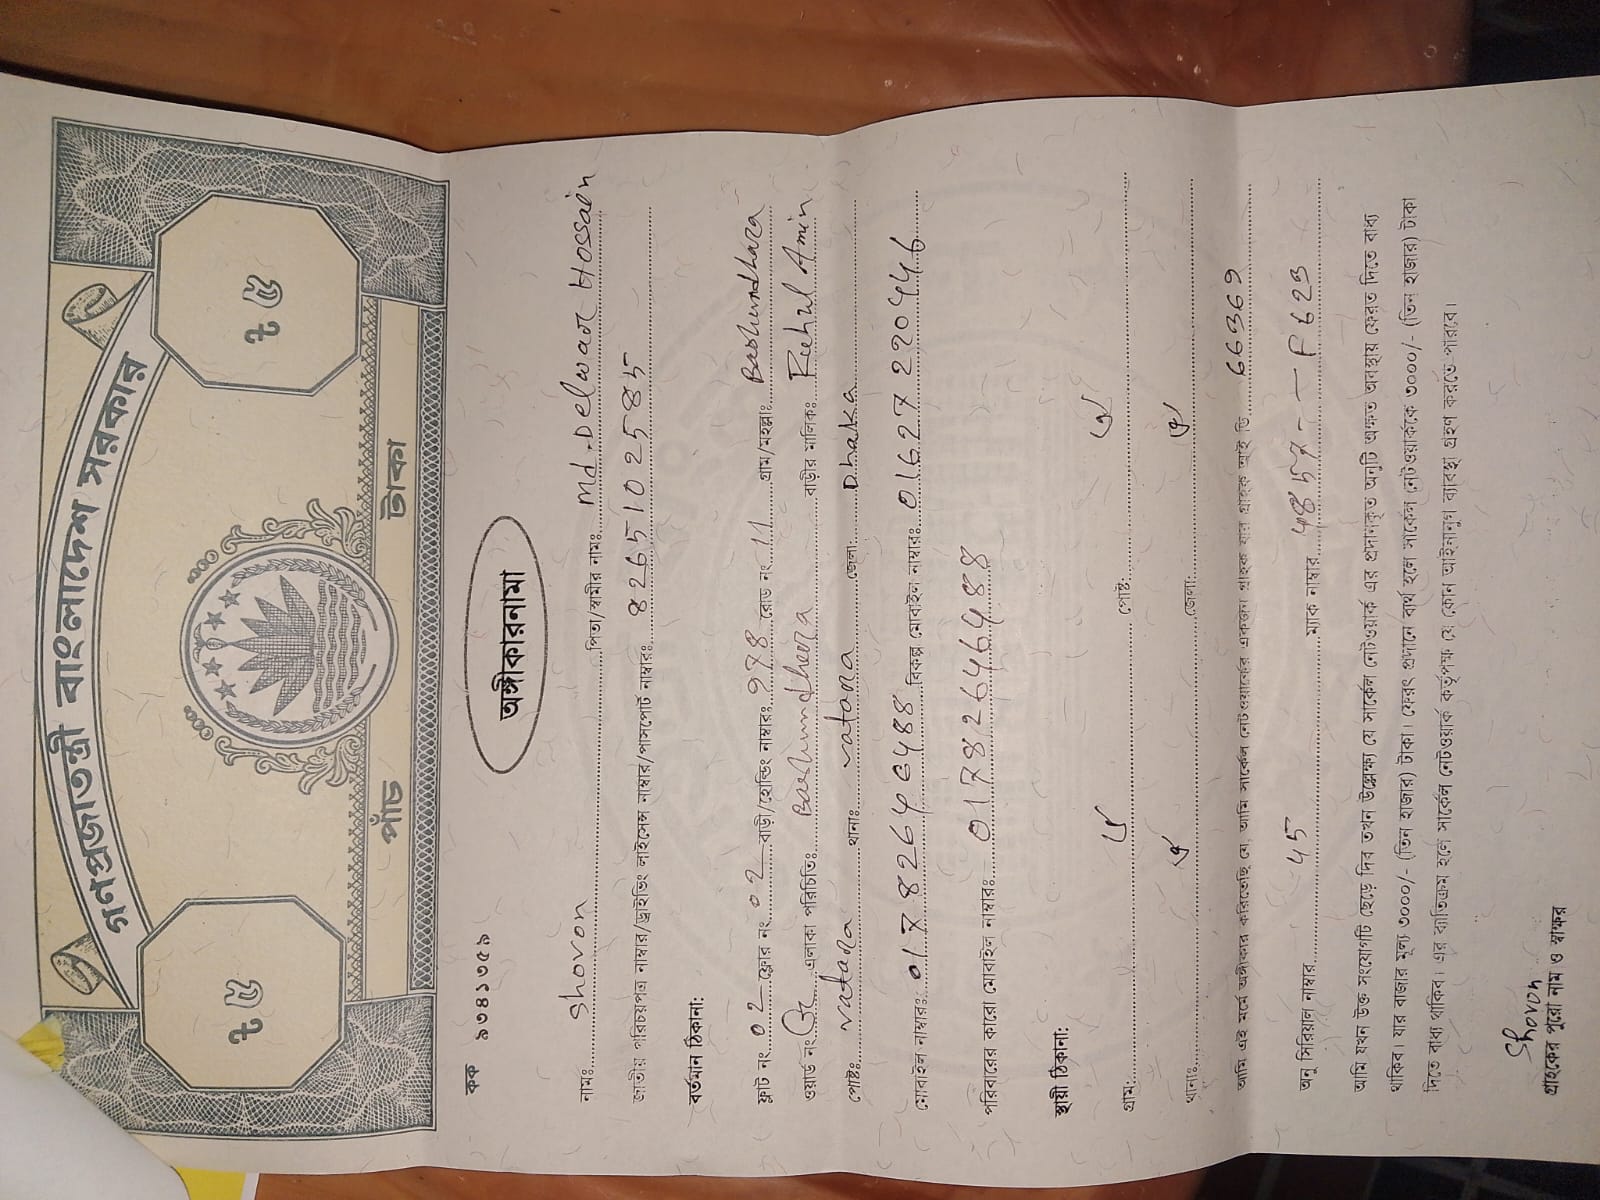 গণপ্রজাতন্ত্রী বাংলাদেশ সরকার
৳ ৫ ৳ ৫
পাঁচ টাকা
কক ৯৩৪১৩৫৯
অঙ্গীকারনামা
নামঃ Shovon পিতা/স্বামীর নামঃ Md. Delwar Hossain
জাতীয় পরিচয়পত্র নাম্বার/ড্রাইভিং লাইসেন্স নাম্বার/পাসপোর্ট নাম্বারঃ 8265102585
বর্তমান ঠিকানা:
ফ্লাট নং 02 ফ্লোর নং 02 বাড়ী/হোল্ডিং নাম্বারঃ রোড নং 11 গ্রাম/মহল্লাঃ Bashundhara
ওয়ার্ড নং এলাকা পরিচিতিঃ Bashundhera বাড়ীর মালিকঃ Ruhul Amin
পোষ্টঃ vatara থানাঃ vatara জেলা: Dhaka
মোবাইল নাম্বারঃ 01782646488 বিকল্প মোবাইল নাম্বারঃ 01627220446
পরিবারের কারো মোবাইল নাম্বারঃ 01782646488
স্থায়ী ঠিকানা:
গ্রাম: ঐ পোষ্ট: ঐ
থানাঃ ঐ জেলা: ঐ
আমি এই মর্মে অঙ্গীকার করিতেছি যে, আমি সার্কেল নেটওয়ার্কের একজন গ্রাহক যার গ্রাহক আই ডি 66369
অনু সিরিয়াল নাম্বার 45 ম্যাক নাম্বার F623
আমি যখন উক্ত সংযোগটি ছেড়ে দিব তখন উল্লেখ্য যে সার্কেল নেটওয়ার্ক এর প্রদানকৃত অনুটি অক্ষত অবস্থায় ফেরত দিতে বাধ্য
থাকিব। যার বাজার মূল্য ৩০০০/- (তিন হাজার) টাকা। ফেরৎ প্রদানে ব্যর্থ হলে সার্কেল নেটওয়ার্ককে ৩০০০/- (তিন হাজার) টাকা
দিতে বাধ্য থাকিব। এর ব্যতিক্রম হলে সার্কেল নেটওয়ার্ক কর্তৃপক্ষ যে কোন আইনানুগ ব্যবস্থা গ্রহন করতে পারবে।
Shovon
গ্রাহকের পুরো নাম ও স্বাক্ষর